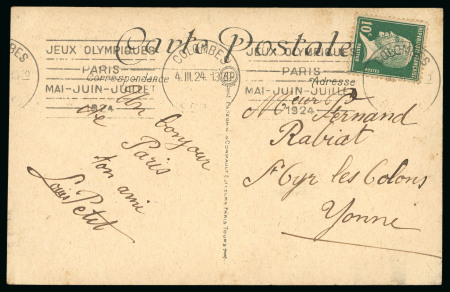 Carte Postale
JEUX OLYMPIQUES
PARIS
MAI-JUIN-JUILLET
1924
COLOMBES
4.III.24
JEUX OLYMPIQUES
PARIS
MAI-JUIN-JUILLET
1924
COLOMBES
10c
POSTES
Correspondance
Adresse
Un bonjour
de Paris
ton ami
Louis Petit
Fernand
Rabiat
St Cyr les Colons
Yonne